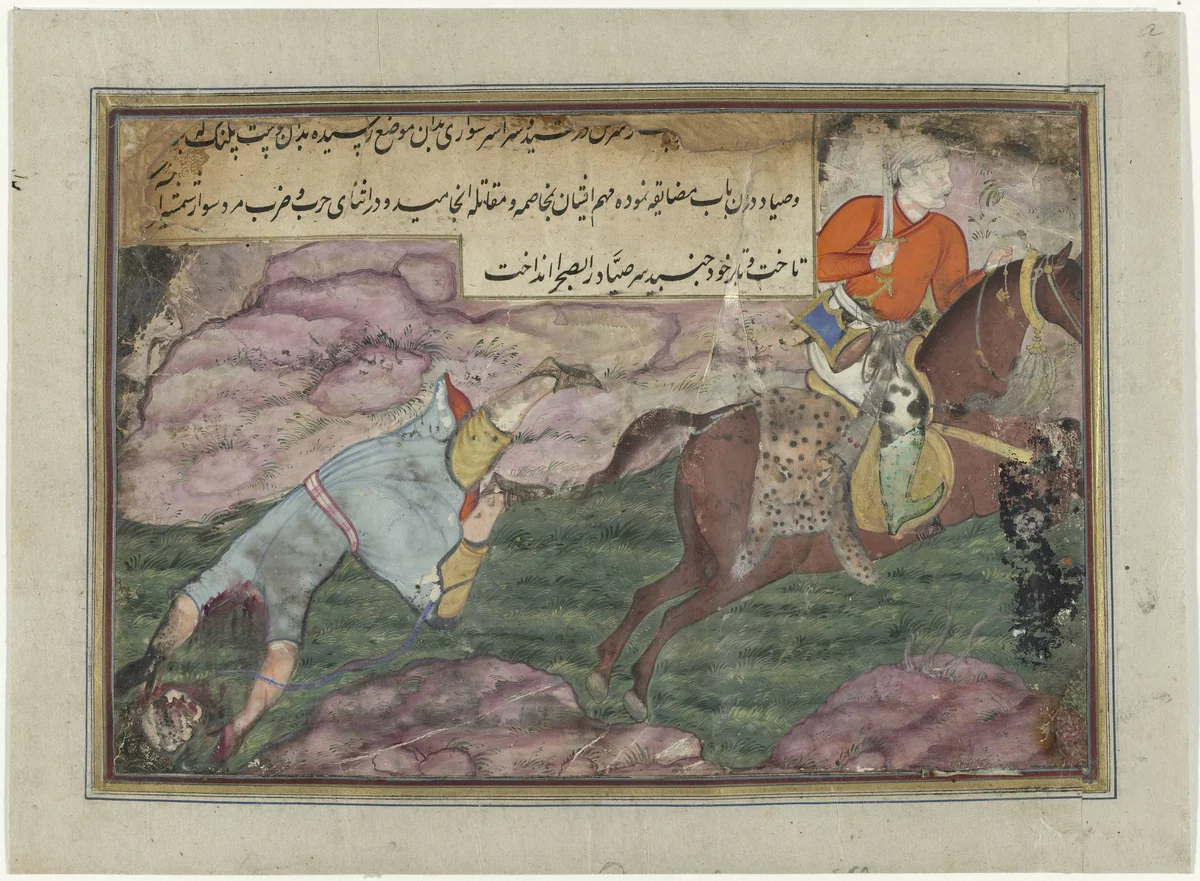 سواری بدان موضع رسیده بدان پوست پلنک
و صیاد دران باب مضایقه نموده مهم ایشان بمخاصمه و مقاتله انجامید و در اثنای حرب و ضرب مرد سوار
تاخت و تا بر خود جنبید سر صیاد انداخت